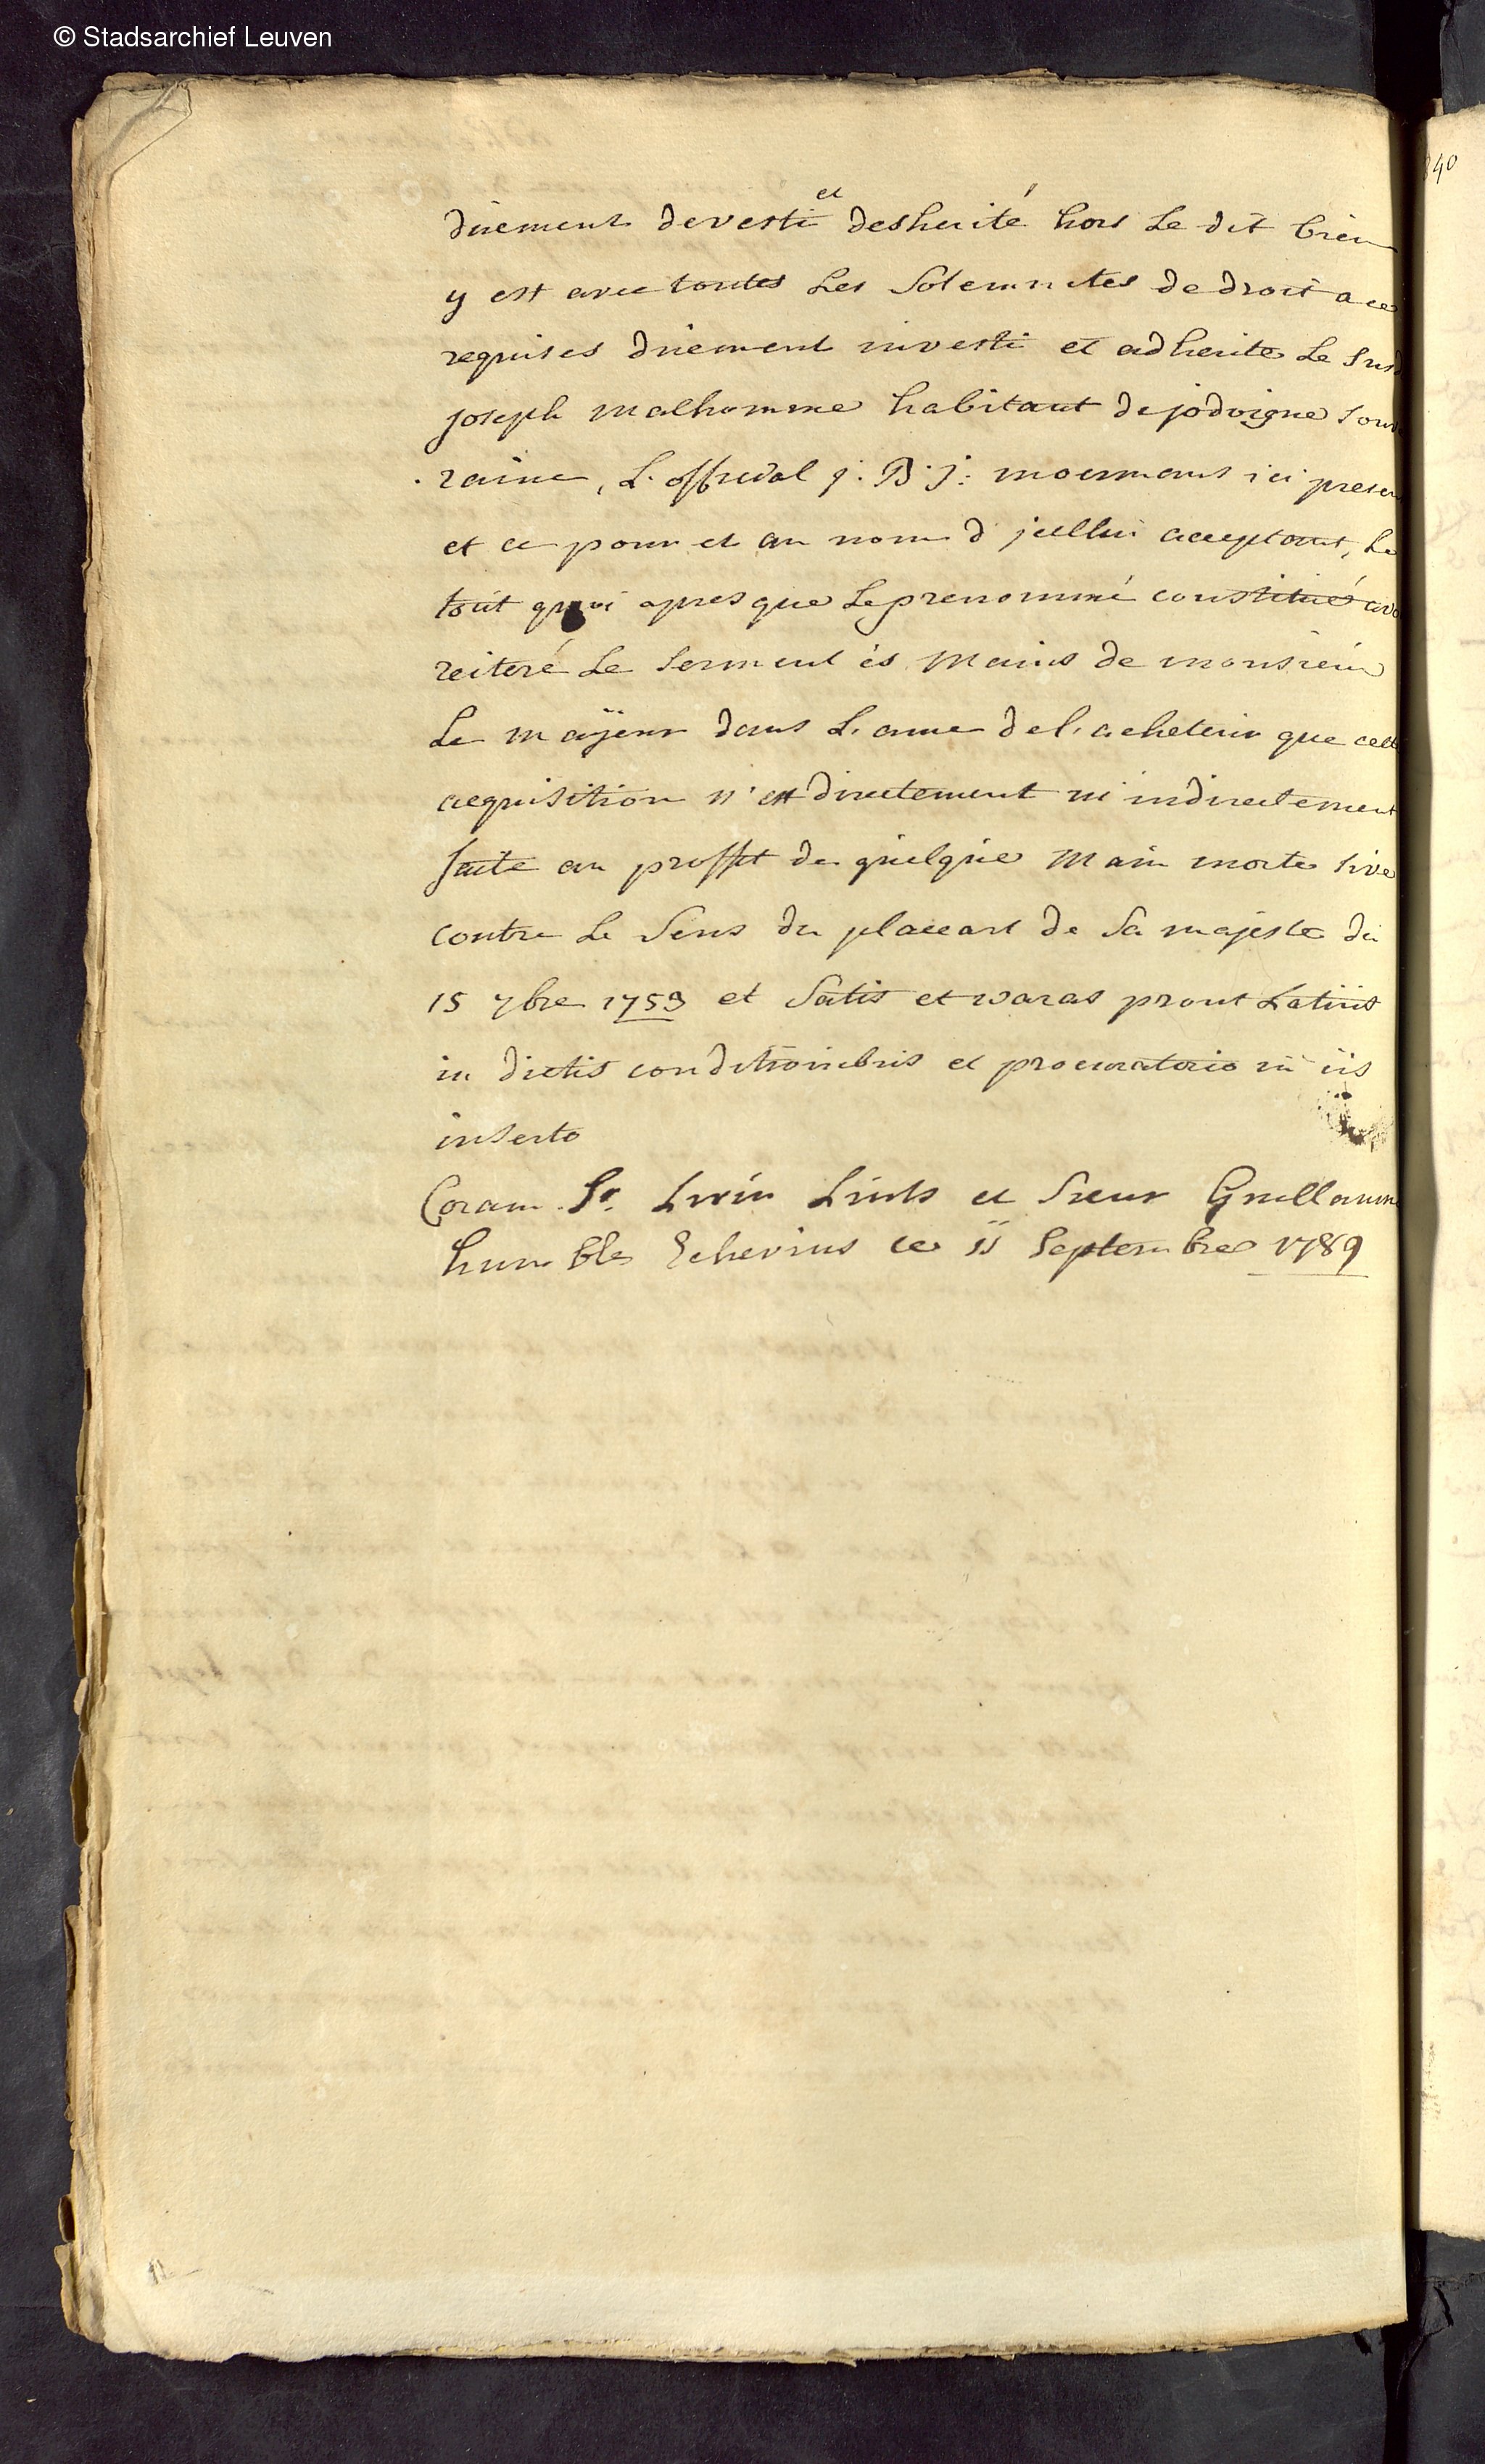 © Stadsarchief Leuven
40
et
düement devesti desherité hors le dit bien
y est avec toutes les solemnites de droit a ce
requises düement investi et adherite le susd
joseph malhomme habitant de jodoigne souve
raine, L. official j: B: j: moermans ici presen
et ce pour et au nom d'icellui acceptant, le
tout quoi apres que le prenommé constitué avo
reiteré le serment és mains de monsieur
le mayeur dans l'ame de l'acheteur que cett
acquisition n'est directement ni indirectement
faite au proffit de quelque main morte sive
contre le sens du placcart de sa majeste du
15 7bre 1753 et satis et waras prout latius
in dictis conditionibus et procuratorio in iis
inserto
Coram Sr. Lints et sieur Guillaum
humble Echevins ce 11 septembre 1789